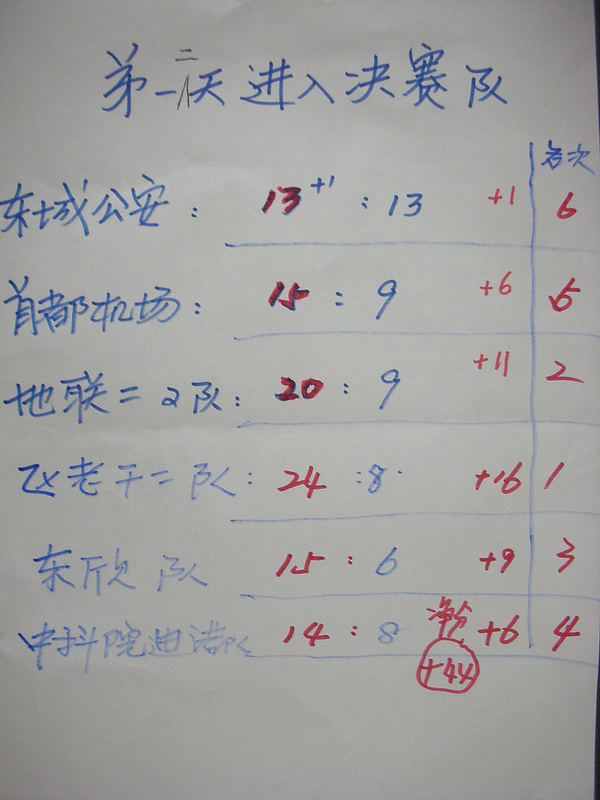 第一二天进入决赛队
名次
东城公安: 13+1 : 13 +1 6
首都机场: 15 : 9 +6 5
地联二2队: 20 : 9 +11 2
老干二队: 24 : 8 +16 1
东欣队 15 : 6 +9 3
中科院迪诺队 14 : 8 净分 +6 4
+44